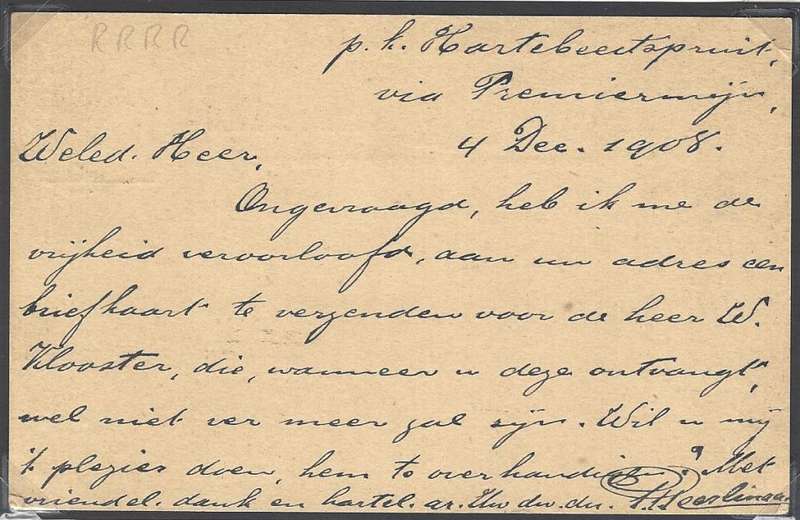 RRRR
p.k. Hartebeestspruit,
via Premiermijn,
4 Dec. 1908.
Weled. Heer,
Ongevraagd, heb ik me de
vrijheid veroorloofd, aan uw adres een
briefkaart te verzenden voor de heer W.
Klooster, die, wanneer u deze ontvangt,
wel niet ver meer zal zijn. Wil u mij
't plezier doen, hem te overhandigen? Met
vriendel. dank en hartel. gr. Uw dw. dn.